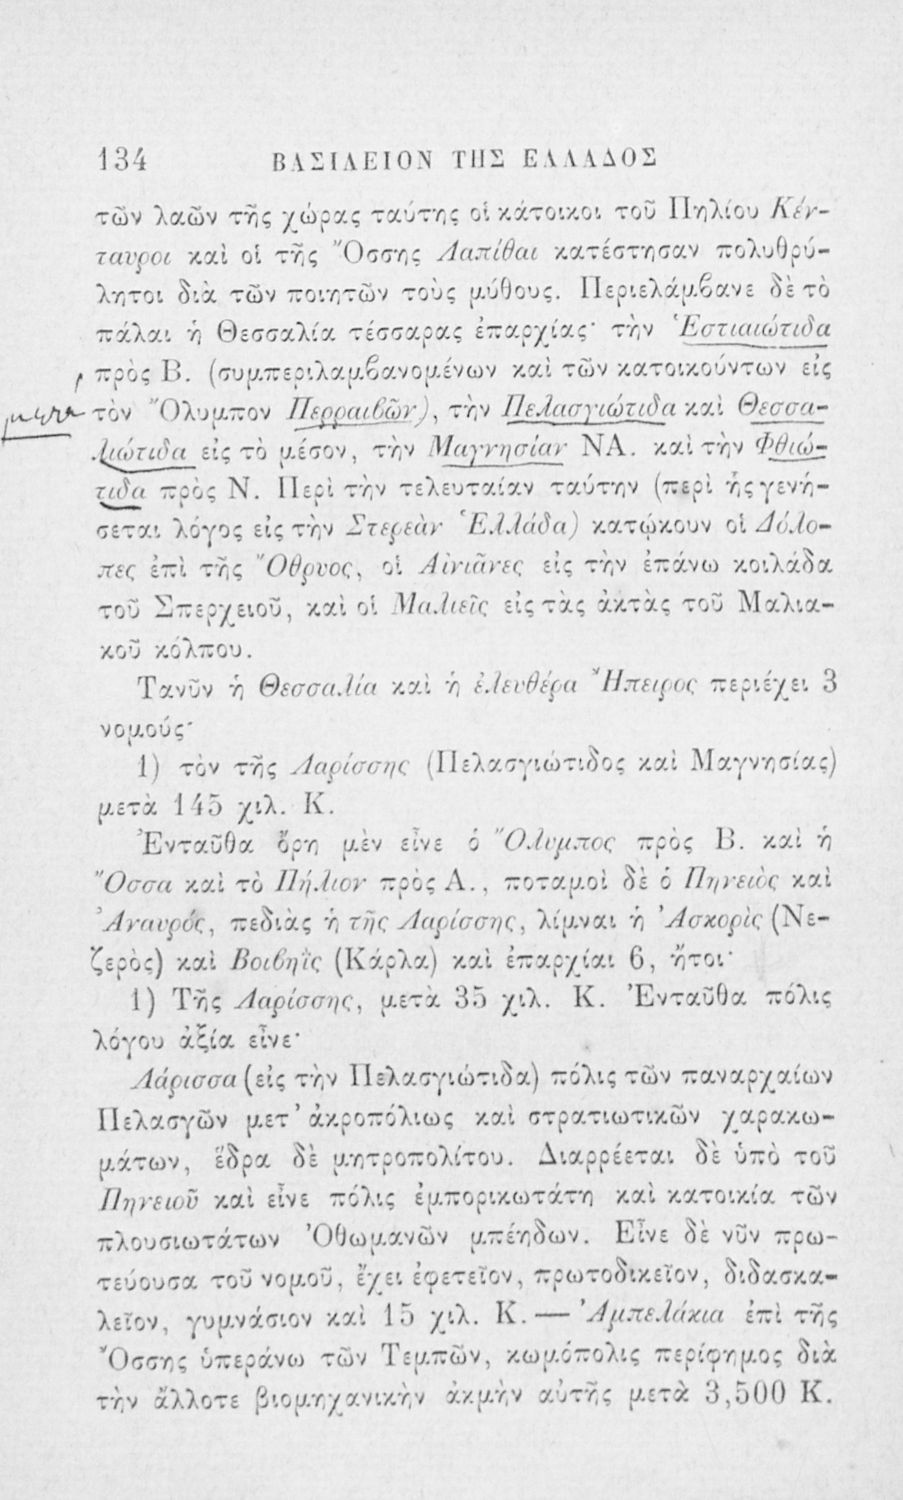 134 ΒΑΣΙΛΕΙΟΝ ΤΗΣ ΕΛΛΑΔΟΣ
τῶν λαῶν τῆς χώρας ταύτης οἱ κάτοικοι τοῦ Πηλίου Κέν-
ταυροι καὶ οἱ τῆς Ὄσσης Λαπίθαι κατέστησαν πολυθρύ-
λητοι διὰ τῶν ποιητῶν τοὺς μύθους. Περιελάμβανε δὲ τὸ
πάλαι ἡ Θεσσαλία τέσσαρας ἐπαρχίας· τὴν Ἑστιαιώτιδα
πρὸς Β. (συμπεριλαμβανομένων καὶ τῶν κατοικούντων εἰς
τὸν Ὄλυμπον Περραιβῶν), τὴν Πελασγιώτιδα καὶ Θεσσα-
λιώτιδα εἰς τὸ μέσον, τὴν Μαγνησίαν ΝΑ. καὶ τὴν Φθιώ-
τιδα πρὸς Ν. Περὶ τὴν τελευταίαν ταύτην (περὶ ἧς γενή-
σεται λόγος εἰς τὴν Στερεὰν Ἑλλάδα) κατῴκουν οἱ Δόλο-
πες ἐπὶ τῆς Ὄθρυος, οἱ Αἰνιᾶνες εἰς τὴν ἐπάνω κοιλάδα
τοῦ Σπερχειοῦ, καὶ οἱ Μαλιεῖς εἰς τὰς ἀκτὰς τοῦ Μαλια-
κοῦ κόλπου.
Τανῦν ἡ Θεσσαλία καὶ ἡ ἐλευθέρα Ἤπειρος περιέχει 3
νομούς·
1) τὸν τῆς Λαρίσσης (Πελασγιώτιδος καὶ Μαγνησίας)
μετὰ 145 χιλ. Κ.
Ἐνταῦθα ὄρη μὲν εἶνε ὁ Ὄλυμπος πρὸς Β. καὶ ἡ
Ὄσσα καὶ τὸ Πήλιον πρὸς Α., ποταμοὶ δὲ ὁ Πηνειὸς καὶ
Ἀναυρός, πεδιὰς ἡ τῆς Λαρίσσης, λίμναι ἡ Ἀσκορὶς (Νε-
ζερὸς) καὶ Βοιβηῒς (Κάρλα) καὶ ἐπαρχίαι 6, ἤτοι·
1) Τῆς Λαρίσσης, μετὰ 35 χιλ. Κ. Ἐνταῦθα πόλις
λόγου ἀξία εἶνε·
Λάρισσα (εἰς τὴν Πελασγιώτιδα) πόλις τῶν παναρχαίων
Πελασγῶν μετ' ἀκροπόλιως καὶ στρατιωτικῶν χαρακω-
μάτων, ἕδρα δὲ μητροπολίτου. Διαρρέεται δὲ ὑπὸ τοῦ
Πηνειοῦ καὶ εἶνε πόλις ἐμπορικωτάτη καὶ κατοικία τῶν
πλουσιωτάτων Ὀθωμανῶν μπέηδων. Εἶνε δὲ νῦν πρω-
τεύουσα τοῦ νομοῦ, ἔχει ἐφετεῖον, πρωτοδικεῖον, διδασκα-
λεῖον, γυμνάσιον καὶ 15 χιλ. Κ. — Ἀμπελάκια ἐπὶ τῆς
Ὄσσης ὑπεράνω τῶν Τεμπῶν, κωμόπολις περίφημος διὰ
τὴν ἄλλοτε βιομηχανικὴν ἀκμὴν αὐτῆς μετὰ 3,500 Κ.